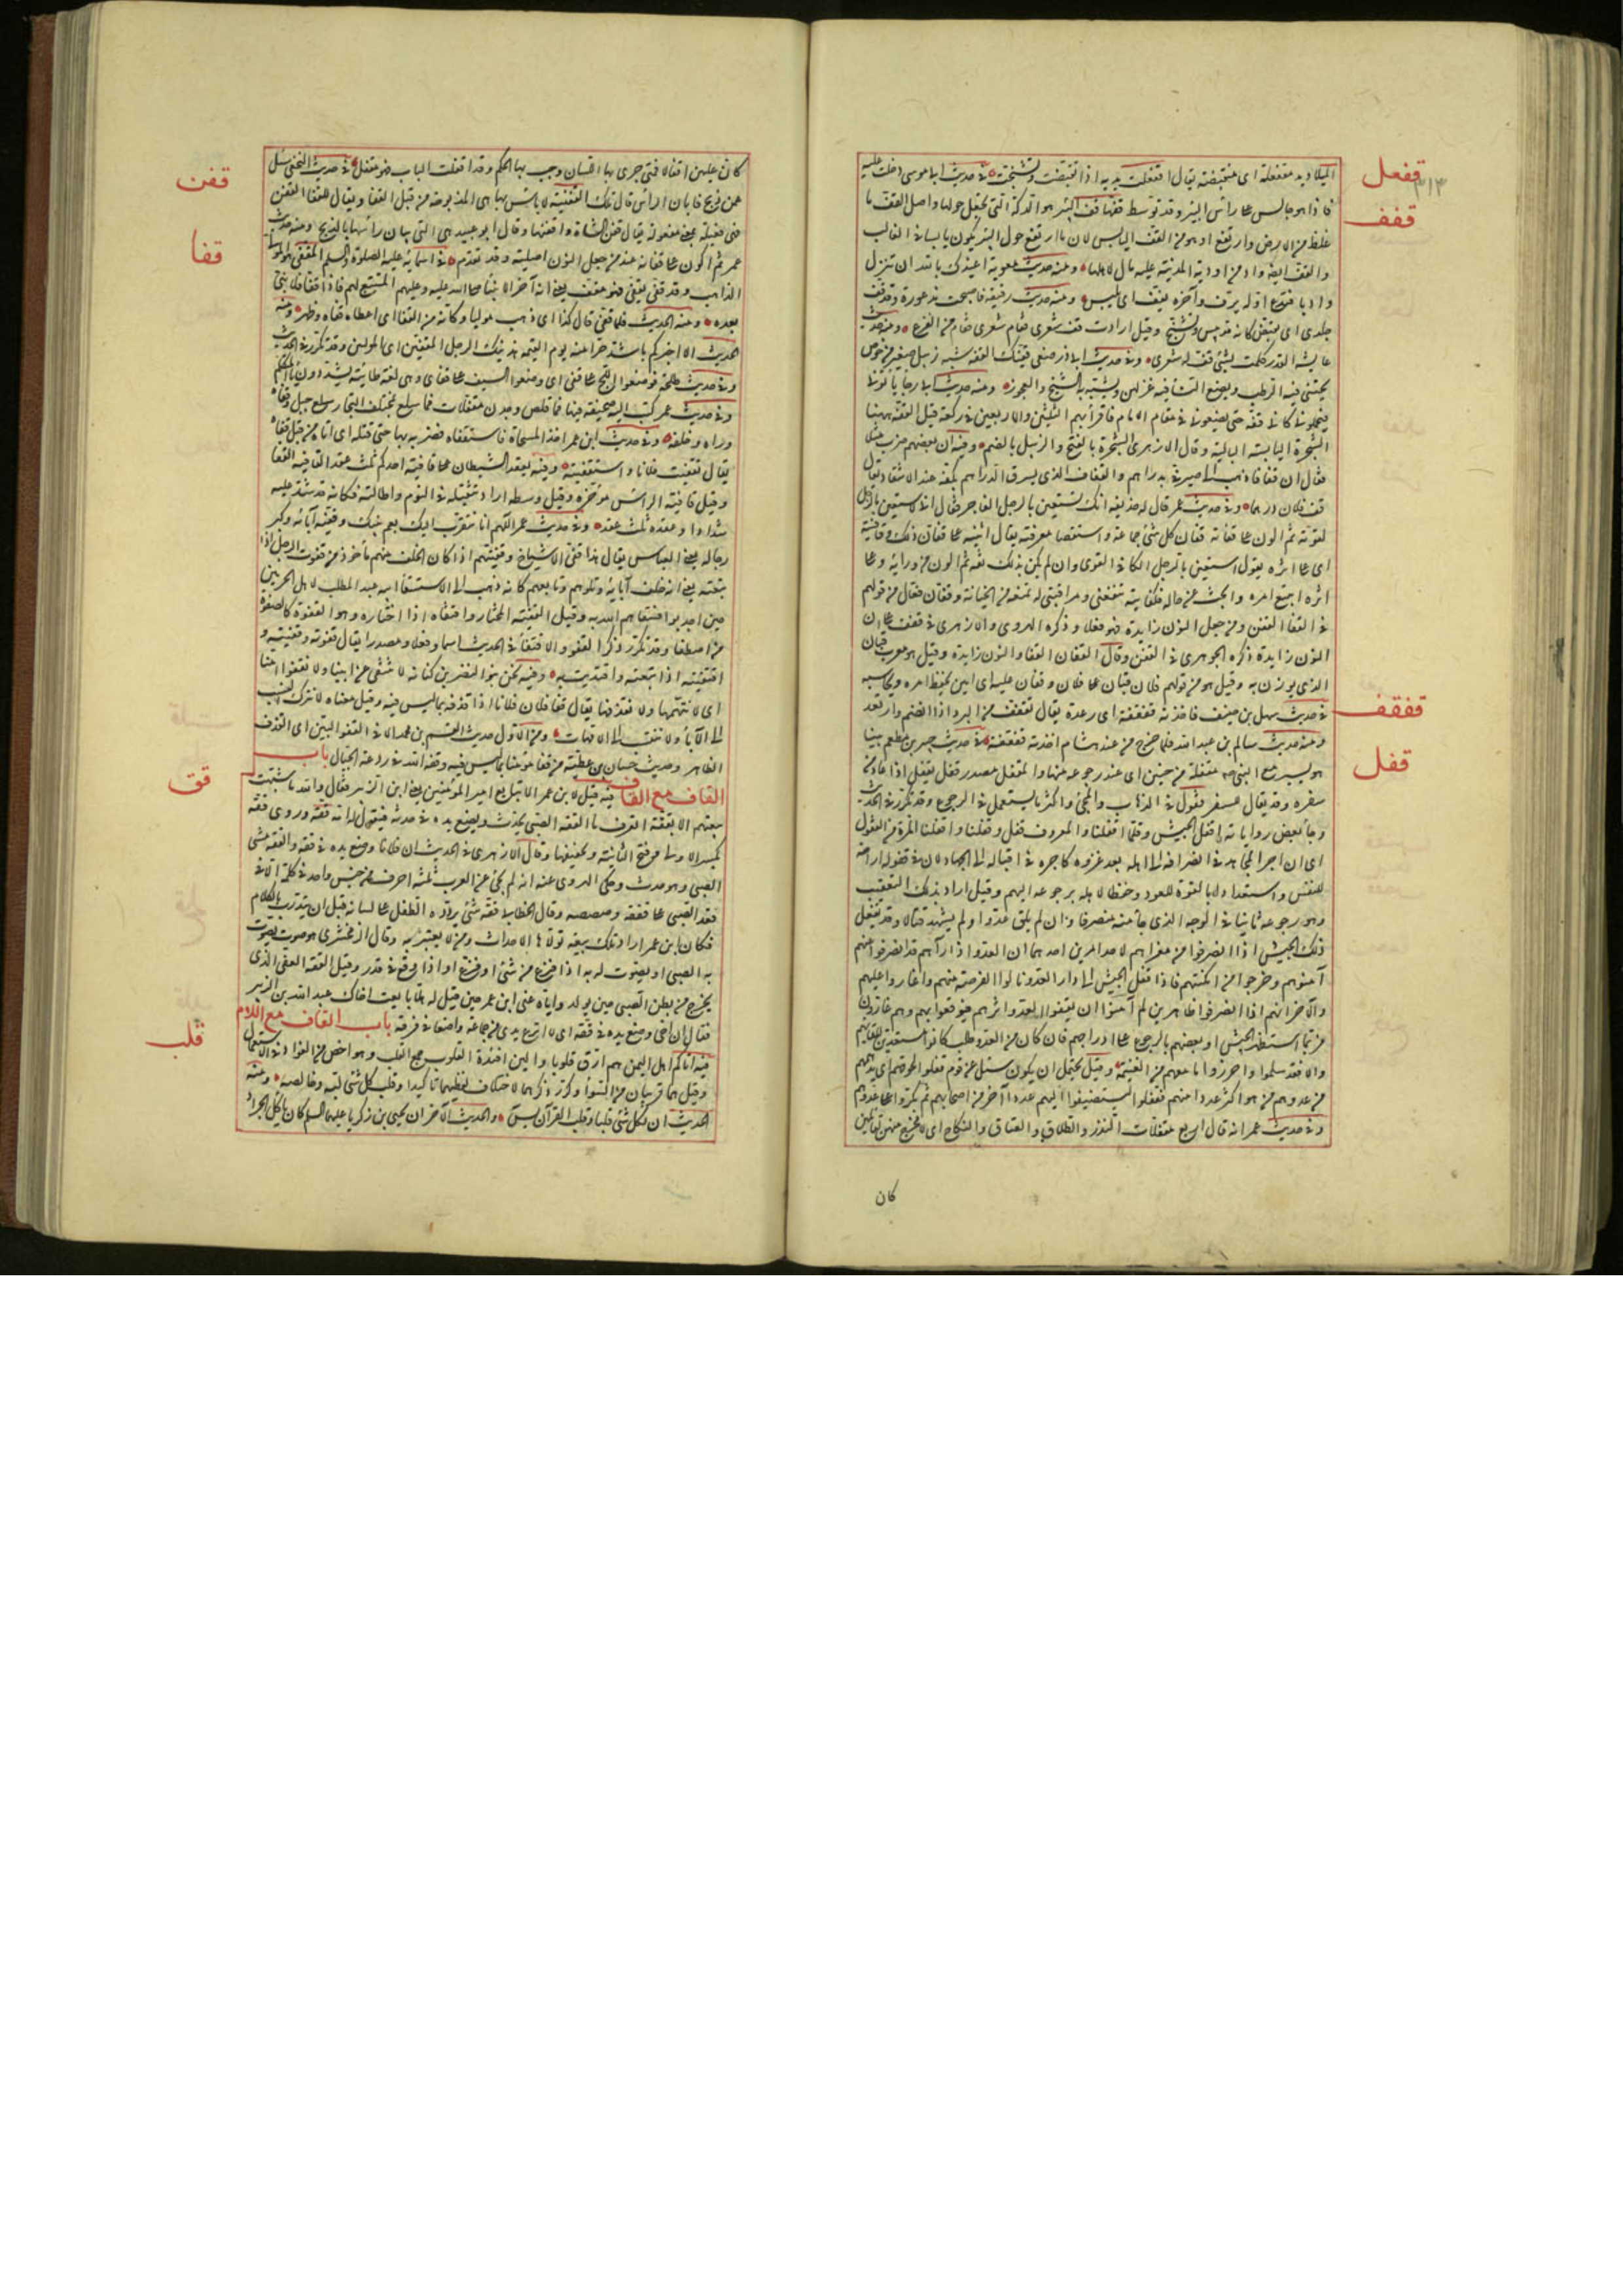 قفعل
٣١٣
قفف
قفقف
قفل
الميلاد يد مقفعلة اى منقبضة يقال اقفعلت يده اذا تقبضت وتشنجت فى حديث ابى موسى دخلت عليه
فاذا هو جالس على راس البئر وقد توسط قفها قف البئر هو الدكة التى تجعل حولها واصل القف ما
غلظ من الارض وارتفع او هو من القف اليابس لان ما ارتفع حول البئر يكون يابسا فى الغالب
والقف ايضا واد من اودية المدينة عليه مال لاهلها ومنه حديث معوية اعيذك بالله ان تنزل
واديا فتدع اوله يرف وآخره يقف اى ييبس ومنه حديث رقيقة فاصبحت مذعورة وقد قف
جلدى اى تقبض كانه قد يبس وتشنج وقيل ارادت قف شعرى فقام شعرى من الفزع ومنه حديث
عايشة لقد تكلمت بشئ قف له شعرى وفى حديث ابى ذر ضعى قفتك القفة شبه زبيل صغير من خوص
يجتنى فيه الرطب ويضع النساء فيه غزلهن ويشبه به الشيخ والعجوز ومنه حديث ابى رجا ياتوننى
فيحملوننى كاننى قفة حتى يضعونى فى مقام الامام فاقرا بهم الثلثين والاربعين فى ركعة قيل القفة ههنا
الشجرة اليابسة البالية وقال الازهرى الشجرة بالفتح والزبيل بالضم وفيه ان بعضهم ضرب مثلا
فقال ان قفافا ذهب الى صيرفى بدراهم القفاف الذى يسرق الدراهم بكفه عند الانتقاد يقال
قف فلان درهما وفى حديث عمر قال له حذيفة انك تستعين بالرجل الفاجر فقال انى لاستعين بالرجل
لقوته ثم اكون على قفانه قفان كل شئ جماعه واستقصا معرفته يقال اتيته على قفان ذلك وقافيته
اى على اثره يقول استعين بالرجل الكافى القوى وان لم يكن بذلك الثقة ثم اكون من ورائه وعلى
اثره اتتبع امره وابحث عن حاله فكفايته تنفعنى ومراقبتى له تمنعه من الخيانة وقفان فعال من قولهم
فى القفا القفن ومن جعل النون زايدة فهو فعلان وذكره الهروى والازهرى فى قفف على ان
النون زايدة وذكره الجوهرى فى القفن وقال القفان القفا والنون زايدة وقيل هو معرب قبان
الذى يوزن به وقيل هو من قولهم فلان قبان على فلان وقفان عليه اى امين يحفظ امره ويحاسبه
فى حديث سهل بن حنيف فاخذته قفقفة اى رعدة يقال تقفقف من البرد اذا انضم وارتعد
ومنه حديث سالم بن عبد الله فلما خرج من عند هشام اخذته قفقفة فى حديث جبير بن مطعم بينا
هو يسير مع النبى صلعم مقفله من حنين اى عند رجوعه منها والمقفل مصدر قفل يقفل اذا عاد من
سفره وقد يقال للسفر قفول فى الذهاب والمجئ واكثر ما يستعمل فى الرجوع وقد تكرر فى الحديث
وجا فى بعض رواياته اقفل الجيش وقلما اقفلنا والمعروف قفل وقفلنا واقفلنا
اى ان اجر المجاهد فى انصرافه الى اهله بعد غزوه كاجره فى اقباله الى الجهاد لان فى قفوله اراحة
للنفس واستعدادا بالقوة للعود وحفظا لاهله برجوعه اليهم وقيل اراد بذلك التعقيب
وهو رجوعه ثانيا فى الوجه الذى جا منه منصرفا وان لم يلق عدوا ولم يشهد قتالا وقد يفعل
ذلك الجيش اذا انصرفوا من مغزاهم لاحد امرين احدهما ان العدو اذا رآهم قد انصرفوا عنهم
آمنوهم وخرجوا من امكنتهم فاذا قفل الجيش الى دار العدو نالوا الفرصة منهم واغاروا عليهم
والآخر انهم اذا انصرفوا ظاهرين لم يآمنوا ان يقفوا العدو اثرهم فيوقعوا بهم وهم غارون
فربما استظهر الجيش او بعضهم بالرجوع على ادراجهم فان كان من العدو طلب كانوا مستعدين للقائهم
والا فقد سلموا واحرزوا ما معهم من الغنيمة وقيل يحتمل ان يكون سئل عن قوم قفلوا لخوفهم ان يدهمهم
من عدوهم من هو اكثر عددا منهم فقفلوا ليستضيفوا اليهم عددا آخر من اصحابهم ثم يكروا على عدوهم
وفى حديث عمر انه قال اربع مقفلات النذر والطلاق والعتاق والنكاح اى لا مخرج منهن لقائلهن
كان
قفن
قفا
قق
قلب
كان عليهن اقفالا فمتى جرى بها اللسان وجب بها الحكم وقد اقفلت الباب فهو مقفل فى حديث النخعى سئل
عمن ذبح فابان الراس قال تلك القفينة لا باس بها هى المذبوحة من قبل القفا ويقال للقفا القفن
فهى فعيلة بمعنى مفعولة يقال قفن الشاة واقتفنها وقال ابو عبيد هى التى يبان راسها بالذبح ومنه حديث
عمر ثم اكون على قفانه عند من جعل النون اصلية وقد تقدم فى اسمائه عليه الصلوة والسلم المقفى هو المولى
الذاهب وقد قفى يقفى فهو مقف يعنى انه آخر الانبياء صلى الله عليه وعليهم المتبع لهم فاذا قفى فلا نبى
بعده ومنه الحديث فلما قفى قال كذا اى ذهب موليا وكانه من القفا اى اعطاه قفاه وظهره ومنه
الحديث الا اخبركم باشد حرا منه يوم القيمة هذينك الرجلين المقفيين اى الموليين وقد تكرر فى الحديث
وفى حديث طلحة فوضعوا اللج على قفى اى وضعوا السيف على قفاى وهى لغة طائية يشددون ياء المتكلم
وفى حديث عمر كتب اليه صحيفة فيها فما قلص وجدن معقلات قفا سلع بمختلف التجار سلع جبل وقفاه
وراه وخلفه وفى حديث ابن عمر اخذ المسحاة فاستقفاه فضربه بها حتى قتله اى اتاه من قبل قفاه
يقال تقفيت فلانا واستقفيته وفيه يعقد الشيطان على قافية احدكم ثلث عقد القافية القفا
وقيل قافية الراس مؤخره وقيل وسطه اراد تثقيله فى النوم واطالته فكانه قد شد عليه
شدادا وعقده ثلث عقد وفى حديث عمر اللهم انا نتقرب اليك بعم نبيك وقفية آبائه وكبر
رجاله يعنى العباس يقال هذا قفى الاشياخ وقفيتهم اذا كان الخلف منهم ماخوذ من قفوت الرجل اذا
تبعته يعنى انه خلف آبائه وتلوهم وتابعهم كانه ذهب الى استسقاء ابيه عبد المطلب لاهل الحرمين
حين اجدبوا فسقاهم الله به وقيل القفية المختار واقتفاه اذا اختاره وهو القفوة كالصفوة
من اصطفا وقد تكرر ذكر القفو والاقتفاء فى الحديث اسما وفعلا ومصدرا يقال قفوته وقفيته و
اقتفيته اذا تبعته واقتديت به وفيه نحن بنو النضر بن كنانة لا ننتفى من ابينا ولا نقفوا امنا
اى لا نتهمها ولا نقذفها يقال قفا فلان فلانا اذا قذفه بما ليس فيه وقيل معناه لا نترك النسب
الى الآباء وننتسب الى الامهات ومن الاول حديث القسم بن محمد لا حد الا فى القفو البين اى القذف
الظاهر وحديث حسان بن عطية من قفا مؤمنا بما ليس فيه وقفه الله فى ردغة الخبال باب
القاف مع القاف فيه قيل لابن عمر الا تبايع امير المؤمنين يعنى ابن الزبير فقال والله ما شبهت
بيعتهم الا بققة اتعرف ما الققة الصبى يحدث ويضع يده فى حدثه فيقول له امه ققة وروى ققة
بكسر الاولى وفتح الثانية وتخفيفها وقال الازهرى فى الحديث ان فلانا وضع يده فى ققة والققة مشى
الصبى وهو حدث وحكى الهروى عنه انه لم يجئ عن العرب ثلثة احرف من جنس واحد فى كلمة الا فى
قعد الصبى على ققته وصصصه وقال الخطابى ققة شئ يردده الطفل على لسانه قبل ان يتدرب بالكلام
فكان ابن عمر اراد تلك بيعة تولاها الاحداث ومن لا يعتبر به وقال الزمخشرى هو صوت يصوت
به الصبى او يصوت له به اذا فزع من شئ او فزع او اذا وقع فى قذر وقيل الققة العقى الذى
يخرج من بطن الصبى حين يولد واياه عنى ابن عمر حين قيل له هلا بايعت اخاك عبد الله بن الزبير
فقال ان اخى وضع يده فى ققة اى لا انزع يدى من جماعة واضعها فى فرقة باب القاف مع اللام
فيه اتاكم اهل اليمن هم ارق قلوبا والين افئدة القلوب جمع القلب وهو اخص من الفؤاد فى الاستعمال
وقيل هما قريبان من السوا وكرر ذكرهما لاختلاف لفظيهما تاكيدا وقلب كل شئ لبه وخالصه ومنه
الحديث ان لكل شئ قلبا وقلب القرآن يس والحديث الآخر ان يحيى بن زكريا عليهما السلم كان ياكل الجراد